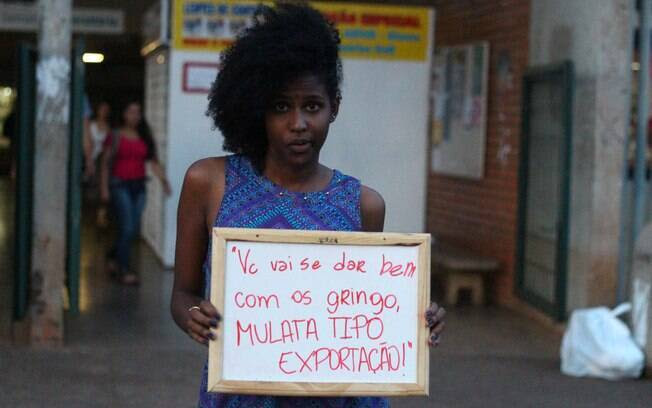 "Vc vai se dar bem
com os gringo,
MULATA TIPO
EXPORTAÇÃO!"